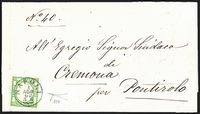 N.º 40.
All' Egregio Signor Sindaco
di
Cremona
per Pontirolo